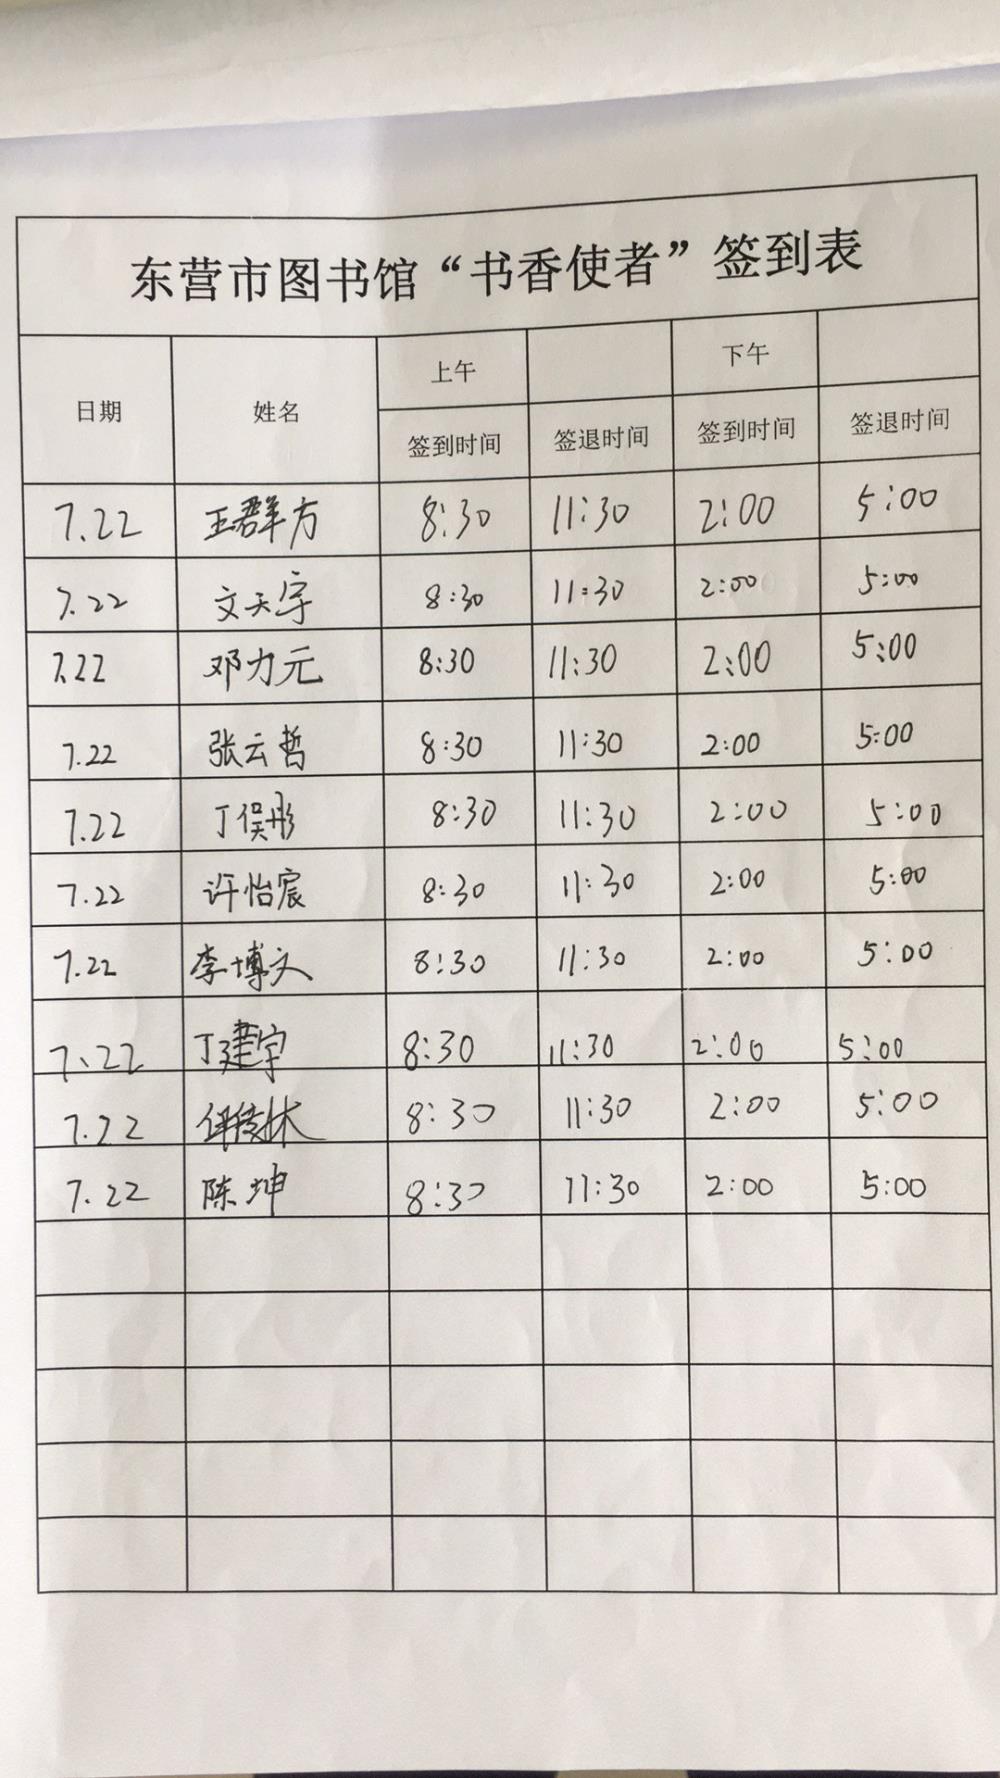 东营市图书馆“书香使者”签到表
日期 姓名 上午 下午
签到时间 签退时间 签到时间 签退时间
7.22 王群方 8:30 11:30 2:00 5:00
7.22 文天宇 8:30 11:30 2:00 5:00
7.22 邓力元 8:30 11:30 2:00 5:00
7.22 张云哲 8:30 11:30 2:00 5:00
7.22 丁俣彤 8:30 11:30 2:00 5:00
7.22 许怡宸 8:30 11:30 2:00 5:00
7.22 李博文 8:30 11:30 2:00 5:00
7.22 丁建宇 8:30 11:30 2:00 5:00
7.22 8:30 11:30 2:00 5:00
7.22 陈坤 8:30 11:30 2:00 5:00